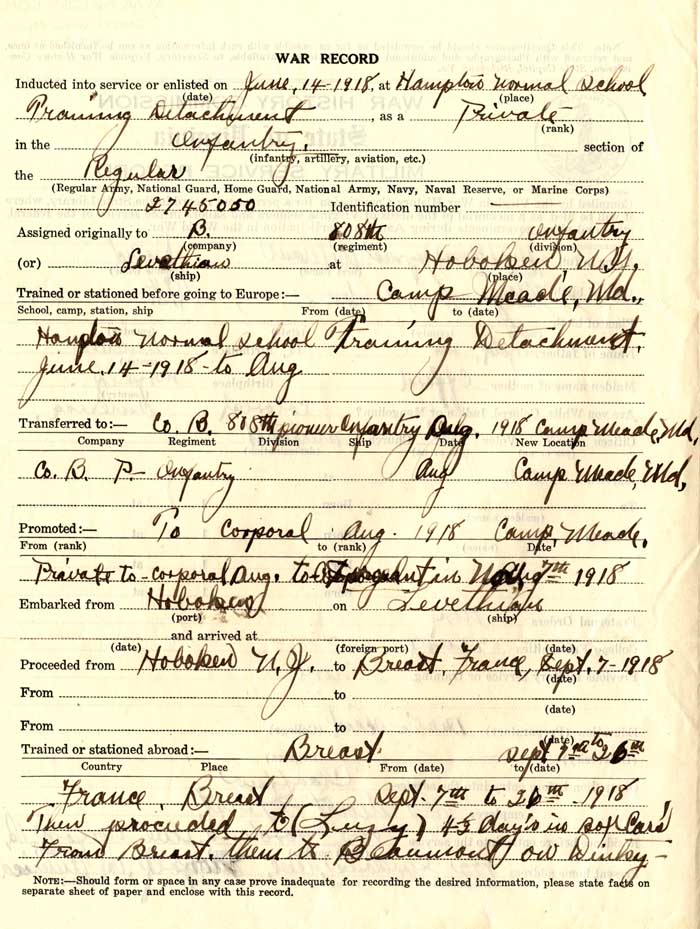 WAR RECORD
Inducted into service or enlisted on June, 14-1918, at Hampton Normal School
(date) (place)
Training Detachment, as a Private
(rank)
in the Infantry. section of
(infantry, artillery, aviation, etc.)
the Regular
(Regular Army, National Guard, Home Guard, National Army, Navy, Naval Reserve, or Marine Corps)
2745050 Identification number
Assigned originally to B. 808th Infantry
(company) (regiment) (division)
(or) Levethian at Hoboken, N.Y.
(ship) (place)
Trained or stationed before going to Europe:— Camp Meade, Md.,
School, camp, station, ship From (date) to (date)
Hampton Normal School Training Detachment.
June, 14-1918- to Aug
Transferred to:— Co. B. 808th pioneer Infantry Aug. 1918 Camp Meade, Md,
Company Regiment Division Ship Date New Location
Co. B. P- Infantry Aug Camp Meade, Md,
Promoted:— To corporal Aug. 1918 Camp, Meade.
From (rank) to (rank) Date
Private to-corporal Aug. to in 7th 1918
Embarked from Hoboken on Levethian
(port) (ship)
and arrived at
(date) (foreign port) (date)
Proceeded from Hoboken N.J. to Breast, France, Sept. 7-1918
(date)
From to
(date)
From to
(date)
Trained or stationed abroad:— Breast. Sept 7th to 26th
Country Place From (date) to (date)
France, Breast Sept. 7th to 26th - 1918
Then procieded to (Luzy) 4½ day's in Box Cars
From Breast, them to Beaumont on Dinky-
NOTE:—Should form or space in any case prove inadequate for recording the desired information, please state facts on
separate sheet of paper and enclose with this record.